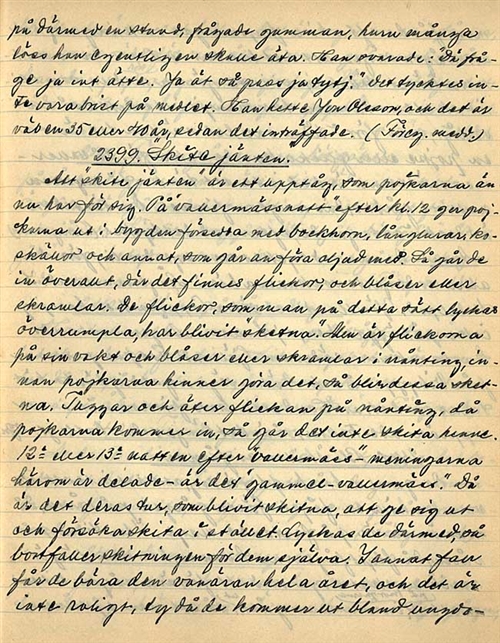 på därmed en stund, frågade gumman, huru många
löss han egentligen skulle äta. Han svarade: "Då frå-
ge ja int ätte. Ja ät så pass ja tytj." Det tycktes in-
te vara brist på medlet. Han hette Jon Olsson, och det är
väl en 35 eller 40 år, sedan det inträffade. (Föreg. medd.)
2399. "Skita jänten."
Att "skite jänten" är ett upptåg, som pojkarna än
nu har för sig. På "vallermässnatt" efter kl. 12 ger poj-
karna ut i bygden försedda med bockhorn, långlurar, ko-
skällor och annat, som går an föra oljud med. Så går de
in överallt, där det finnes flickor, och blåser eller
skramlar. De flickor, som man på detta sätt lyckas
överrumpla, har blivit "sketna". Men är flickorna
på sin vakt och blåser eller skramlar i nånting, in-
nan pojkarna hinner göra det, så blir dessa sket-
na. Tuggar och äter flickan på nånting, då
pojkarna kommer in, så går det inte skita henne.
12:e eller 13:e natten efter "vallermäss" - meningarna
härom är delade - är det "gammel-vallermäss." Då
är det deras tur, som blivit skitna, att ge sig ut
och försöka skita i stället. Lyckas de därmed, så
bortfaller skitningen för dem själva. I annat fall
får de bära den vanäran hela året, och det är
inte roligt, ty då de kommer ut bland ungdo-